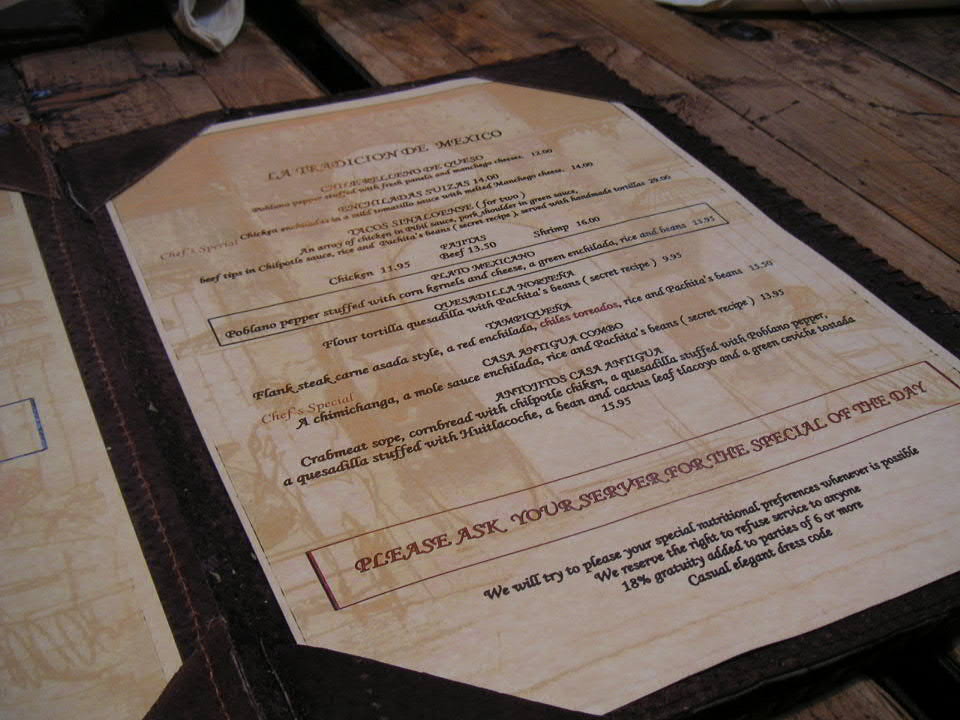 LA TRADICION DE MEXICO
CHILE RELLENO DE QUESO
Poblano pepper stuffed with fresh panela and manchego cheeses. 12.00
ENCHILADAS SUIZAS 14.00
Chicken enchiladas in a mild tomatillo sauce with melted Manchego cheese. 14.00
TACOS SINALOENSE ( for two )
Chef's Special An array of chicken in Pibil sauce, pork shoulder in green sauce,
beef tips in Chilpotle sauce, rice and Pachita's beans ( secret recipe ), served with handmade tortillas 29.00
FAJITAS
Chicken 11.95 Beef 13.50 Shrimp 16.00
PLATO MEXICANO
Poblano pepper stuffed with corn kernels and cheese, a green enchilada, rice and beans 13.95
QUESADILLA NORTEÑA
Flour tortilla quesadilla with Pachita's beans ( secret recipe ) 9.95
TAMPIQUEÑA
Flank steak carne asada style, a red enchilada, chiles toreados, rice and Pachita's beans 15.50
CASA ANTIGUA COMBO
Chef's Special A chimichanga, a mole sauce enchilada, rice and Pachita's beans ( secret recipe ) 13.95
ANTOJITOS CASA ANTIGUA
Crabmeat sope, cornbread with chilpotle chiken, a quesadilla stuffed with Poblano pepper,
a quesadilla stuffed with Huitlacoche, a bean and cactus leaf tlacoyo and a green ceviche tostada
15.95
PLEASE ASK YOUR SERVER FOR THE SPECIAL OF THE DAY
We will try to please your special nutritional preferences whenever is possible
We reserve the right to refuse service to anyone
18% gratuity added to parties of 6 or more
Casual elegant dress code